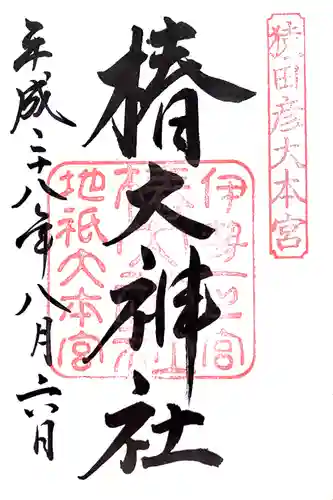 猿田彦大本宮
椿大神社
平成二十八年八月六日
伊勢一之宮
地祇大本宮